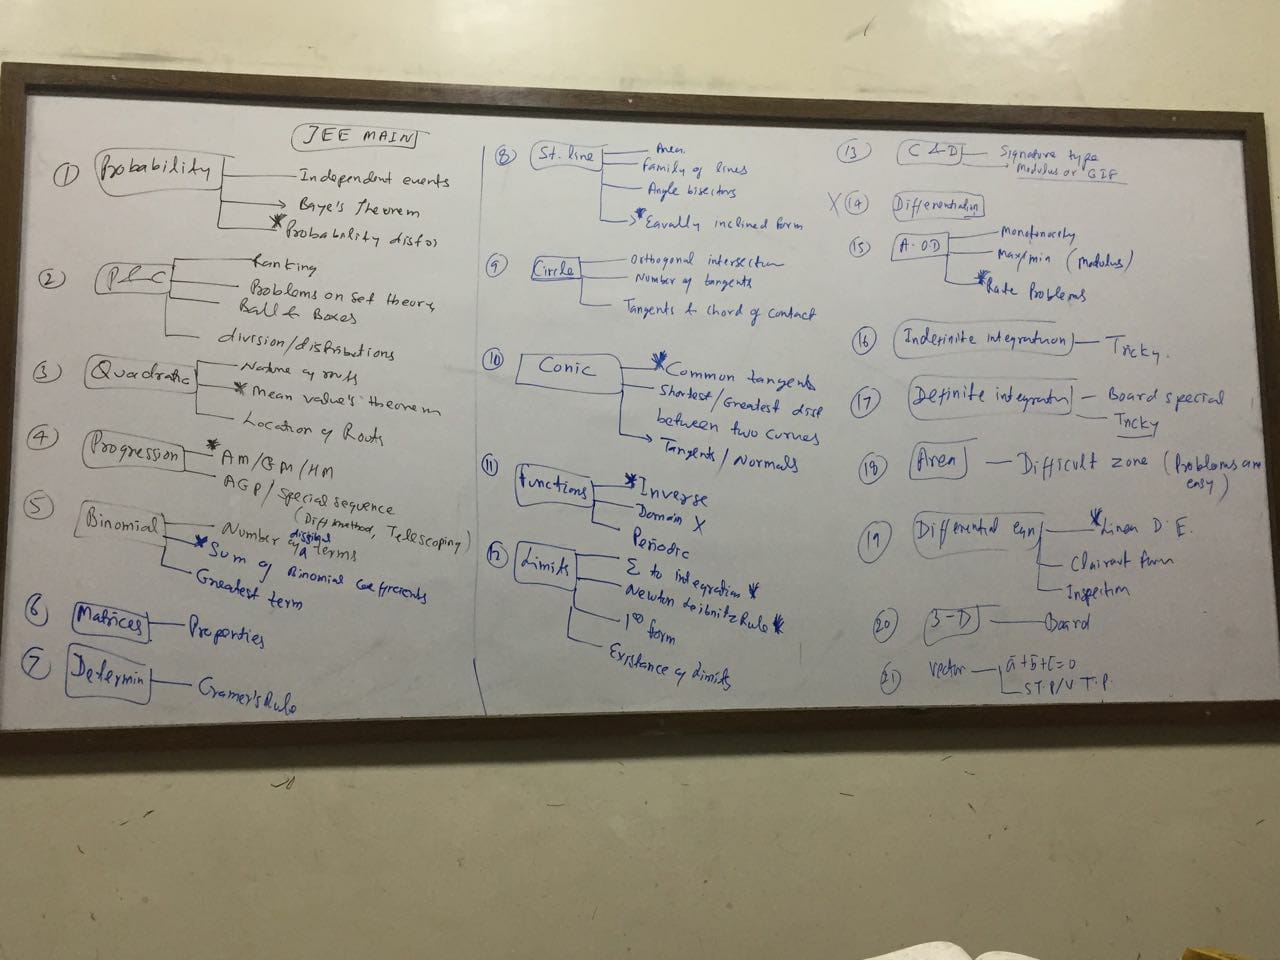 JEE MAIN
① Probability
Independent events
Baye's Theorem
* Probability distri
② P & C
Ranking
Problems on set theory
Ball & Boxes
division/distributions
③ Quadratic
Nature of roots
* Mean value's theorem
Location of Roots
④ Progression
* AM/GM/HM
AGP/Special sequence
(Diff method, Telescoping)
⑤ Binomial
Number of terms
* Sum of Binomial coefficients
Greatest term
⑥ Matrices
Properties
⑦ Determin
Cramer's Rule
⑧ St. line
Area
Family of lines
Angle bisectors
* Equally inclined form
⑨ Circle
Orthogonal intersection
Number of tangents
Tangents & chord of contact
⑩ Conic
* Common tangents
Shortest/Greatest dist
between two curves
Tangents/Normals
⑪ Functions
* Inverse
Domain X
Periodic
⑫ Limits
Σ to integration *
Newton Leibnitz Rule *
1^∞ form
Existance of limits
⑬ C & D
Signature type
Modulus or GIF
X ⑭ Differentiation
⑮ A.O.D
Monotonocity
Max/min (Modulus)
* Rate Problems
⑯ Indefinite integration
Tricky.
⑰ Definite integration
Board special
Tricky
⑱ Area
Difficult zone (Problems are
easy)
⑲ Differential eqn
* Linear D.E.
Clairaut form
Inspection
⑳ 3-D
Board
㉑ Vector
ā+b̄+c̄=0
S.T.P/V.T.P.